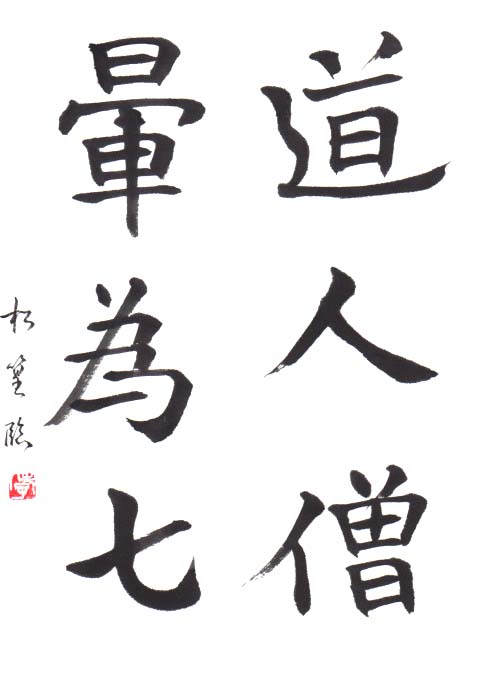 道人僧
暈為七
松臨